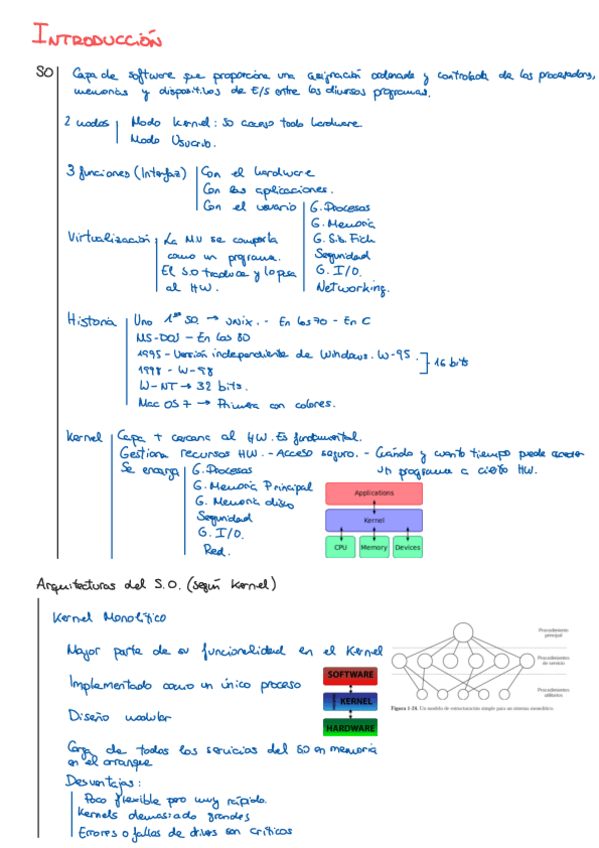 INTRODUCCIÓN
SO
Capa de software que proporciona una asignación ordenada y controlada de los procesadores,
memorias y dispositivos de E/S entre los diversos programas.
2 modos
Modo Kernel: SO acceso todo hardware
Modo Usuario.
3 funciones (Interfaz)
Con el hardware
Con las aplicaciones.
Con el usuario
G. Procesos
G. Memoria
G. Sis. Fich
Seguridad
G. I/O.
Networking.
Virtualización
La MV se comporta
como un programa.
El S.O traduce y lo pasa
al HW.
Historia
Uno 1os SO. → UNIX. - En los 70 - En C
MS-DOS - En los 80
1995 - Versión independiente de Windows. W-95.
1998 - W-98
16 bits
W-NT → 32 bits.
Mac OS 7 → Primera con colores.
Kernel
Capa + cercana al HW. Es fundamental.
Gestiona recursos HW. - Acceso seguro. - Cuándo y cuanto tiempo puede acceder
un programa a cierto HW.
Se encarga
G. Procesos
G. Memoria Principal
G. Memoria disco
Seguridad
G. I/O.
Red.
Applications
Kernel
CPU
Memory
Devices
Arquitecturas del S.O. (según Kernel)
Kernel Monolítico
Mayor parte de su funcionalidad en el Kernel
Implementado como un único proceso
Diseño modular
Carga de todos los servicios del SO en memoria
en el arranque
Desventajas:
Poco flexible pero muy rápido.
Kernels demasiado grandes
Errores o fallas de drives son críticos
SOFTWARE
KERNEL
HARDWARE
Procedimiento
principal
Procedimientos
de servicio
Procedimientos
utilitarios
Figura 1-24. Un modelo de estructuración simple para un sistema monolítico.